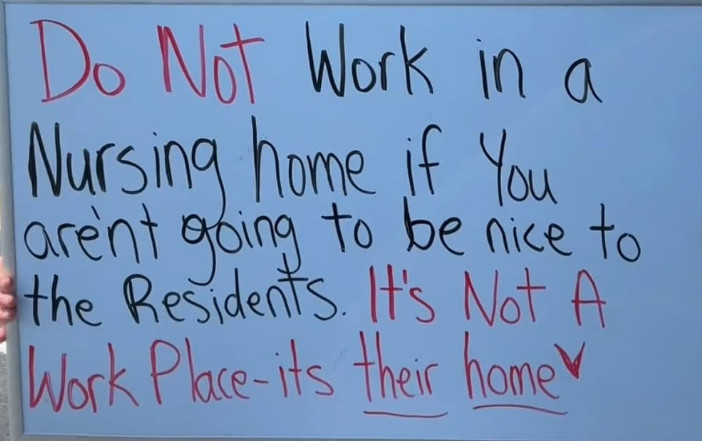 Do Not Work in a
Nursing home if You
aren't going to be nice to
the Residents. It's Not A
Work Place-its their home